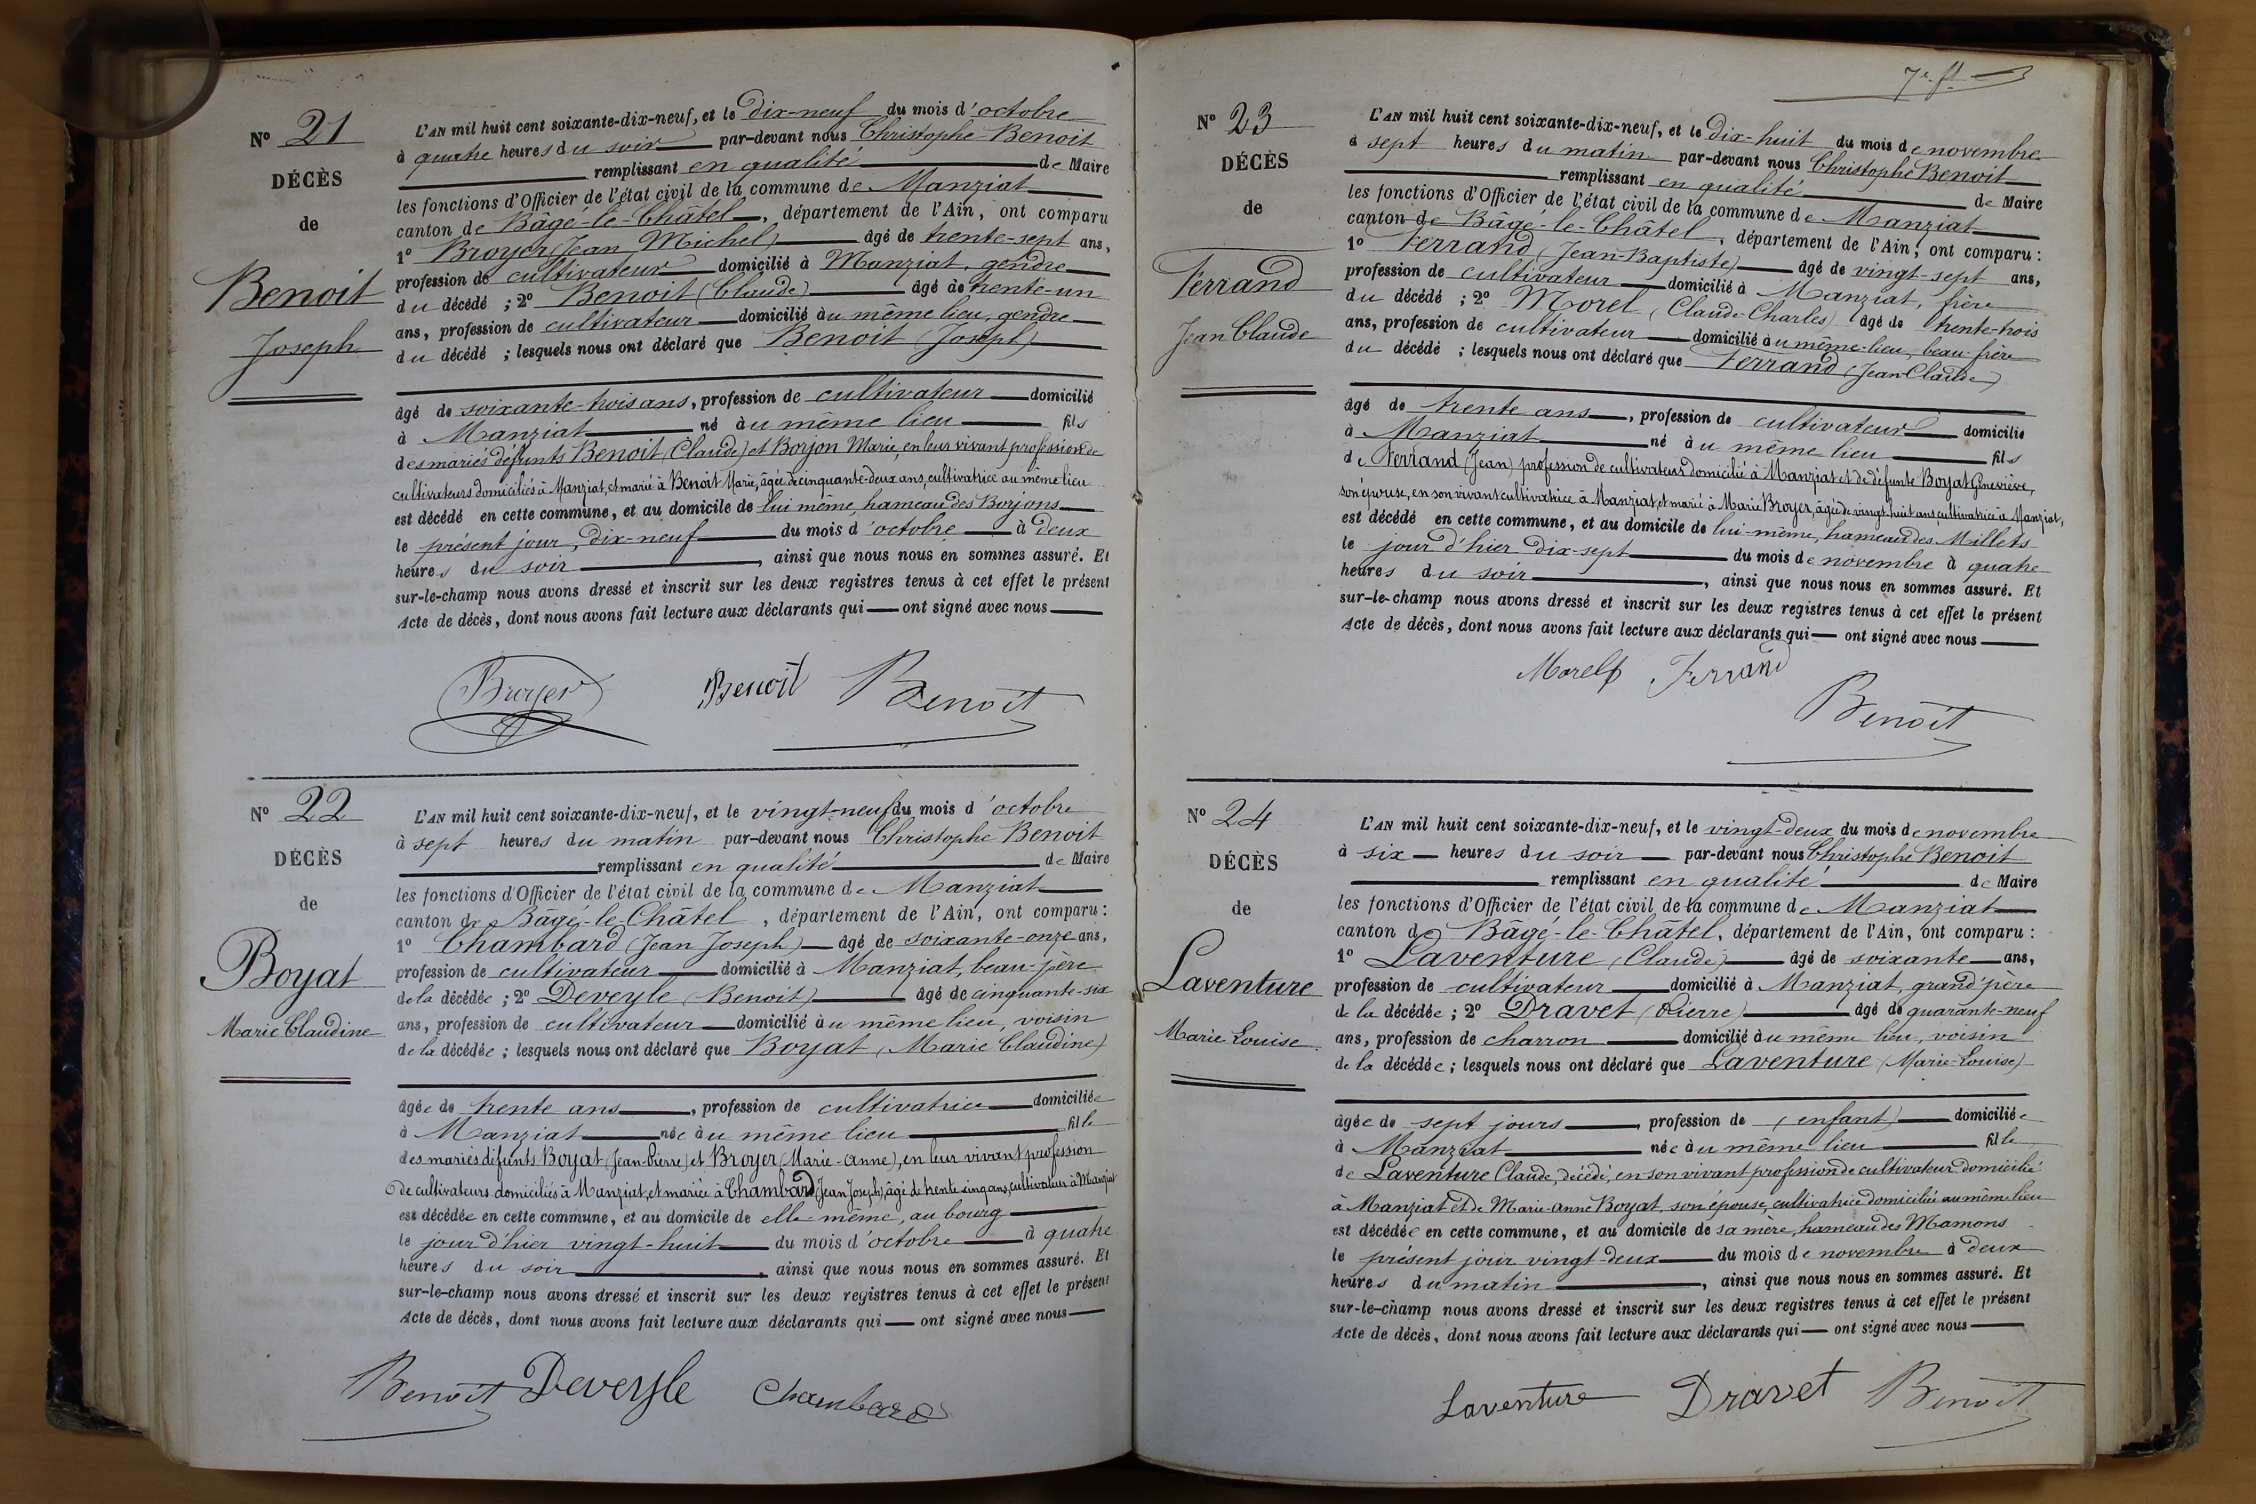 Nº 21
DÉCÈS
de
Benoit
Joseph
L'AN mil huit cent soixante-dix-neuf, et le dix-neuf du mois d'octobre
à quatre heures du soir par-devant nous Christophe Benoit
remplissant en qualité de Maire
les fonctions d'Officier de l'état civil de la commune de Manziat
canton de Bâgé-le-Châtel, département de l'Ain, ont comparu
1º Broyer (Jean Michel) âgé de trente-sept ans,
profession de cultivateur domicilié à Manziat, gendre
du décédé ; 2º Benoit (Claude) âgé de trente-un
ans, profession de cultivateur domicilié au même lieu, gendre
du décédé ; lesquels nous ont déclaré que Benoit (Joseph)
âgé de soixante-trois ans, profession de cultivateur domicilié
à Manziat né au même lieu fils
des mariés défunts Benoit (Claude) et Borjon Marie, en leur vivant profession de
cultivateurs domiciliés à Manziat, et marié à Benoit Marie, âgée de cinquante-deux ans, cultivatrice au même lieu
est décédé en cette commune, et au domicile de lui même, hameau des Borjons
le présent jour, dix-neuf du mois d'octobre à deux
heures du soir, ainsi que nous nous en sommes assuré. Et
sur-le-champ nous avons dressé et inscrit sur les deux registres tenus à cet effet le présent
Acte de décès, dont nous avons fait lecture aux déclarants qui ont signé avec nous
Broyer Benoit Benoit
Nº 22
DÉCÈS
de
Boyat
Marie Claudine
L'AN mil huit cent soixante-dix-neuf, et le vingt-neuf du mois d'octobre
à sept heures du matin par-devant nous Christophe Benoit
remplissant en qualité de Maire
les fonctions d'Officier de l'état civil de la commune de Manziat
canton de Bâgé-le-Châtel, département de l'Ain, ont comparu :
1º Chambard (Jean Joseph) âgé de soixante-onze ans,
profession de cultivateur domicilié à Manziat, beau-père
de la décédée ; 2º Deveyle (Benoit) âgé de cinquante-six
ans, profession de cultivateur domicilié au même lieu, voisin
de la décédée ; lesquels nous ont déclaré que Boyat (Marie Claudine)
âgée de trente ans, profession de cultivatrice domiciliée
à Manziat née au même lieu fille
des mariés défunts Boyat (Jean-Pierre) et Broyer (Marie-Anne), en leur vivant profession
de cultivateurs domiciliés à Manziat, et mariée à Chambard (Jean Joseph), âgé de trente cinq ans, cultivateur à Manziat
est décédée en cette commune, et au domicile de elle-même, au bourg
le jour d'hier vingt-huit du mois d'octobre à quatre
heures du soir, ainsi que nous nous en sommes assuré. Et
sur-le-champ nous avons dressé et inscrit sur les deux registres tenus à cet effet le présent
Acte de décès, dont nous avons fait lecture aux déclarants qui ont signé avec nous
Benoit Deveyle Chambard
7e. ft
Nº 23
DÉCÈS
de
Ferrand
Jean Claude
L'AN mil huit cent soixante-dix-neuf, et le dix-huit du mois de novembre
à sept heures du matin par-devant nous Christophe Benoit
remplissant en qualité de Maire
les fonctions d'Officier de l'état civil de la commune de Manziat
canton de Bâgé-le-Châtel, département de l'Ain, ont comparu :
1º Ferrand (Jean-Baptiste) âgé de vingt-sept ans,
profession de cultivateur domicilié à Manziat, frère
du décédé ; 2º Morel (Claude-Charles) âgé de trente-trois
ans, profession de cultivateur domicilié au même-lieu, beau-frère
du décédé ; lesquels nous ont déclaré que Ferrand (Jean-Claude)
âgé de trente ans, profession de cultivateur domicilié
à Manziat né au même lieu fils
de Ferrand (Jean) profession de cultivateur domicilié à Manziat et de défunte Boyat Geneviève,
son épouse, en son vivant cultivatrice à Manziat, et marié à Marie Broyer, âgée de vingt-huit ans, cultivatrice à Manziat,
est décédé en cette commune, et au domicile de lui-même, hameau des Millets
le jour d'hier dix-sept du mois de novembre à quatre
heures du soir, ainsi que nous nous en sommes assuré. Et
sur-le-champ nous avons dressé et inscrit sur les deux registres tenus à cet effet le présent
Acte de décès, dont nous avons fait lecture aux déclarants qui ont signé avec nous
Morel Ferrand
Benoit
Nº 24
DÉCÈS
de
Laventure
Marie Louise
L'AN mil huit cent soixante-dix-neuf, et le vingt-deux du mois de novembre
à six heures du soir par-devant nous Christophe Benoit
remplissant en qualité de Maire
les fonctions d'Officier de l'état civil de la commune de Manziat
canton de Bâgé-le-Châtel, département de l'Ain, ont comparu :
1º Laventure (Claude) âgé de soixante ans,
profession de cultivateur domicilié à Manziat, grand'père
de la décédée ; 2º Dravet (Pierre) âgé de quarante-neuf
ans, profession de charron domicilié au même lieu, voisin
de la décédée ; lesquels nous ont déclaré que Laventure (Marie-Louise)
âgée de sept jours, profession de (enfant) domiciliée
à Manziat née au même lieu fille
de Laventure Claude, décédé, en son vivant profession de cultivateur domicilié
à Manziat et de Marie-Anne Boyat, son épouse, cultivatrice domiciliée au même lieu
est décédée en cette commune, et au domicile de sa mère, hameau des Mamons
le présent jour vingt-deux du mois de novembre à deux
heures du matin, ainsi que nous nous en sommes assuré. Et
sur-le-champ nous avons dressé et inscrit sur les deux registres tenus à cet effet le présent
Acte de décès, dont nous avons fait lecture aux déclarants qui ont signé avec nous
Laventure Dravet Benoit